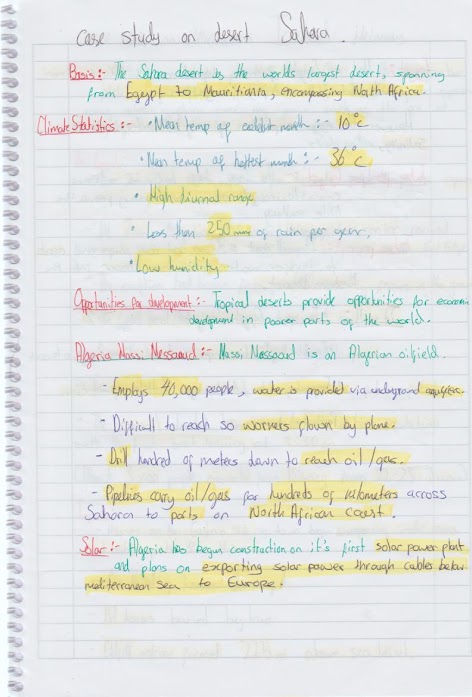 case study on desert Sahara.
Basis:- The Sahara desert is the worlds largest desert, spanning
from Egeypt to Mauritiania, encompassing North Africa.
Climate Statistics:- • Mean temp of coldest month:- 10°c
• Mean temp of hottest month:- 36°c
• High diurnal range
• Less than 250mm of rain per year.
• Low humidity
Opportunities for development:- Tropical deserts provide opportunities for economic
development in poorer parts of the world.
Algeria Hassi Messaoud:- Hassi Messaoud is an Algerian oilfield.
- Employs 40,000 people, water is provided via underground aquifers.
- Difficult to reach so workers flown by plane.
- Drill hundred of meters down to reach oil/gas.
- Pipelines carry oil/gas for hundreds of kilometers across
Sahara to ports on North African coast.
Solar:- Algeria has begun construction on it's first solar power plant
and plans on exporting solar power through cables below
mediterranean sea to Europe.